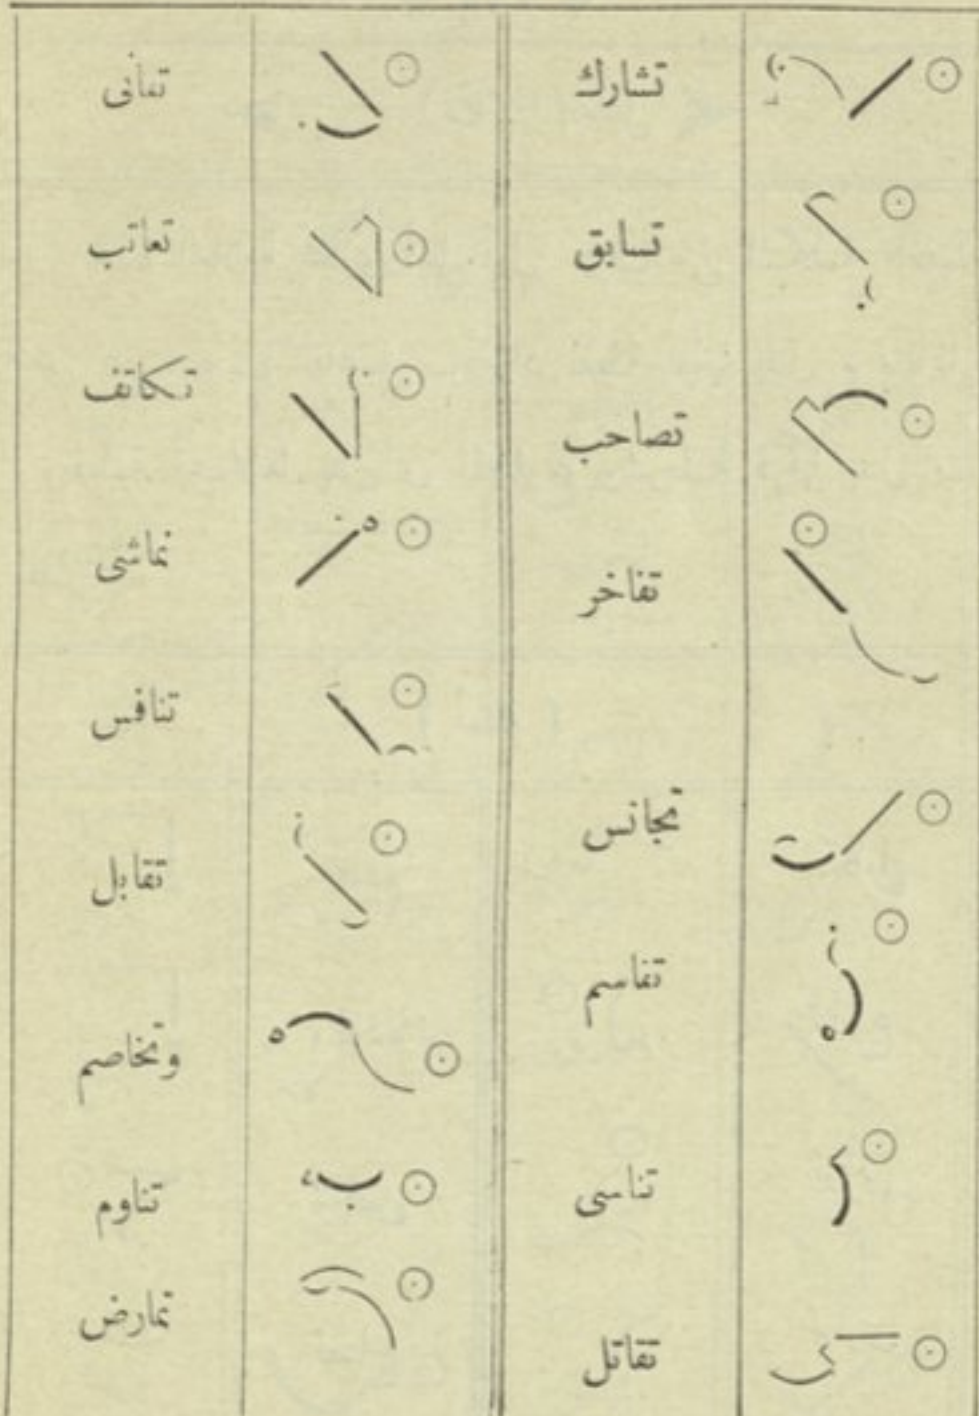 تشارك
تسابق
تصاحب
تفاخر
تجانس
تقاسم
تناسى
تقاتل
تفانى
تعاتب
تكاتف
تماشى
تنافس
تقابل
وتخاصم
تناوم
تمارض